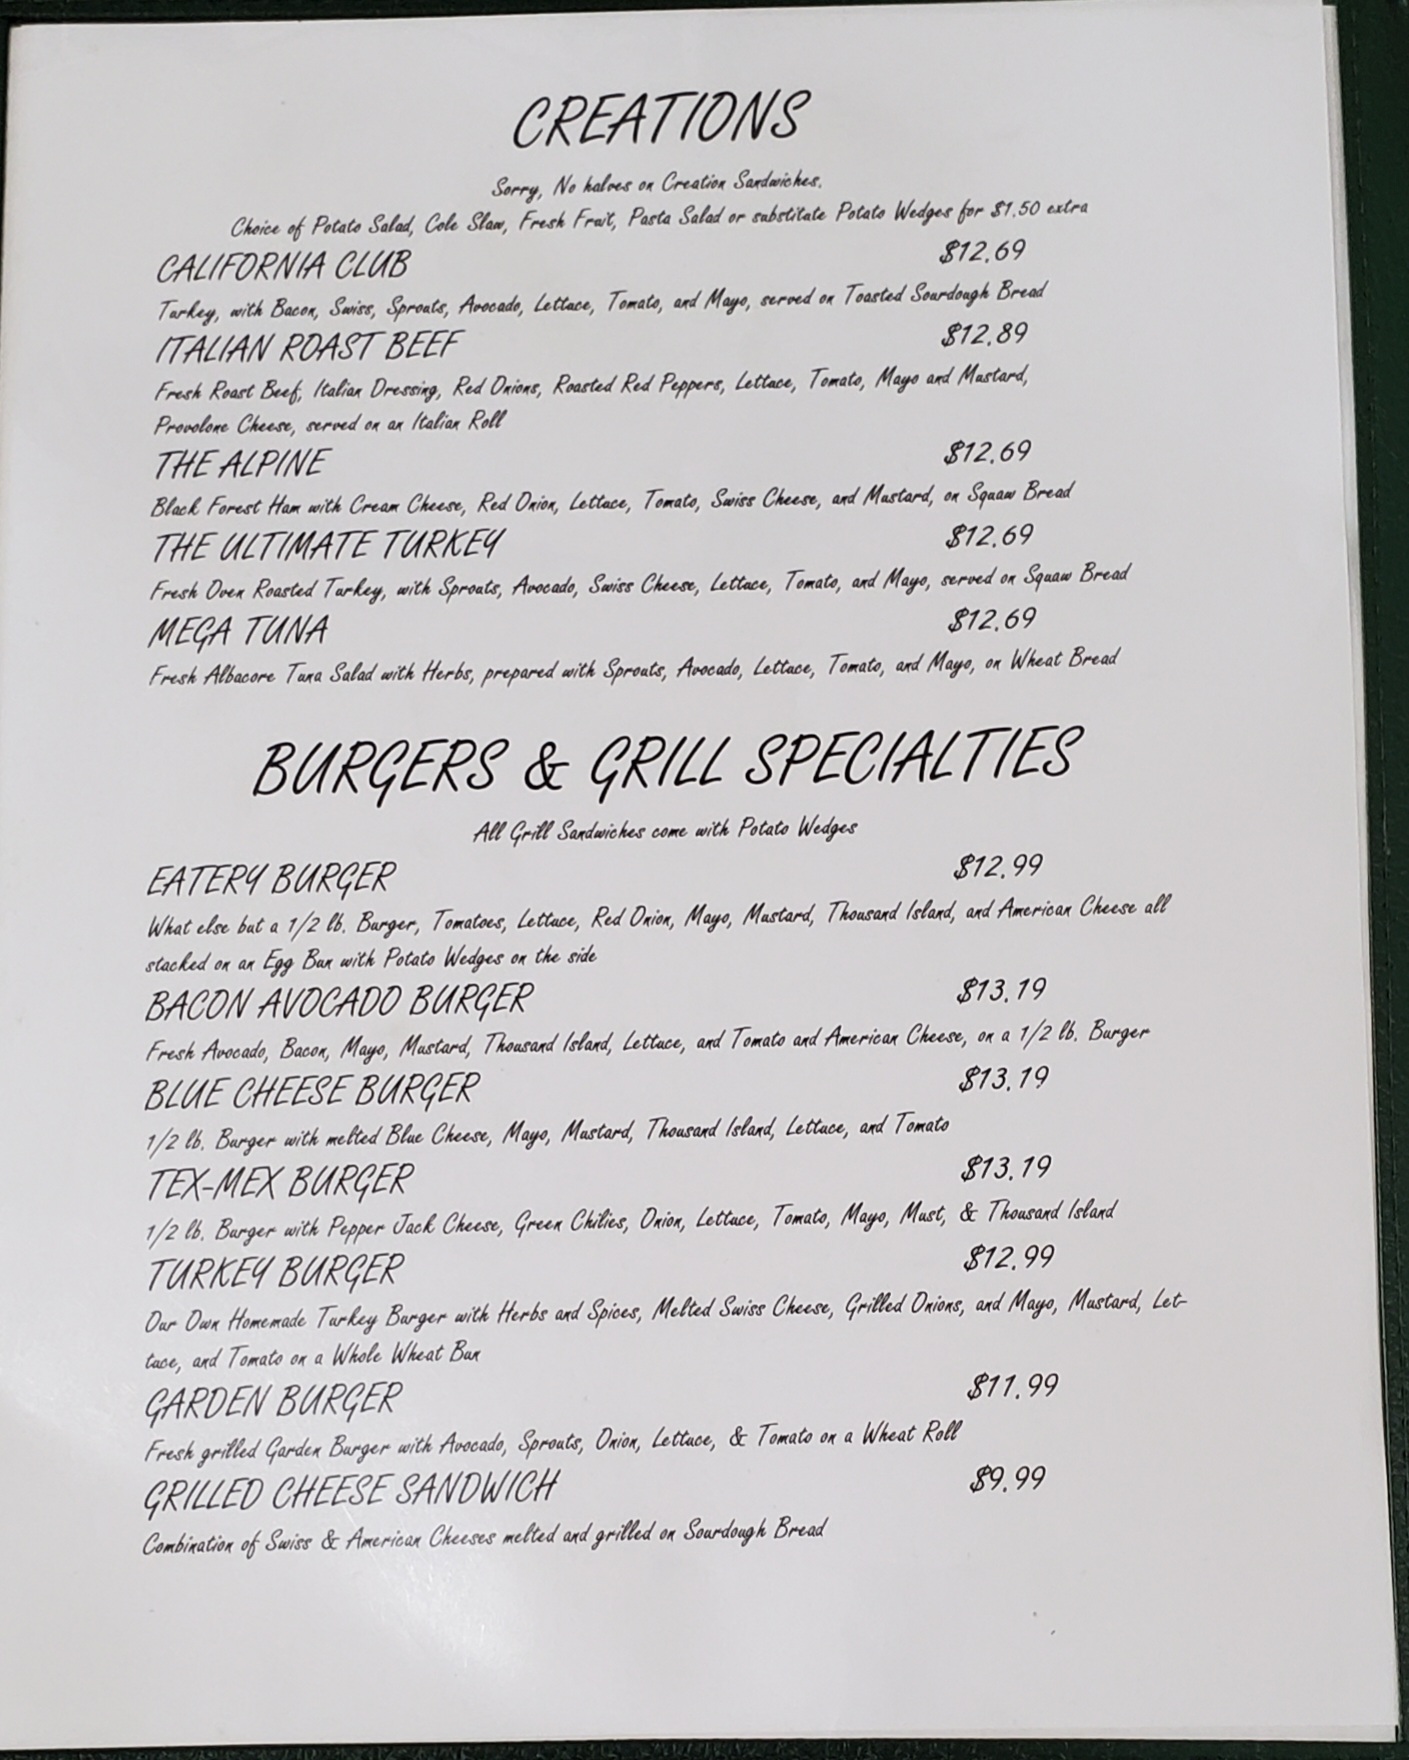 CREATIONS
Sorry, No halves on Creation Sandwiches.
Choice of Potato Salad, Cole Slaw, Fresh Fruit, Pasta Salad or substitute Potato Wedges for $1.50 extra
CALIFORNIA CLUB $12.69
Turkey, with Bacon, Swiss, Sprouts, Avocado, Lettuce, Tomato, and Mayo, served on Toasted Sourdough Bread
ITALIAN ROAST BEEF $12.89
Fresh Roast Beef, Italian Dressing, Red Onions, Roasted Red Peppers, Lettuce, Tomato, Mayo and Mustard,
Provolone Cheese, served on an Italian Roll
THE ALPINE $12.69
Black Forest Ham with Cream Cheese, Red Onion, Lettuce, Tomato, Swiss Cheese, and Mustard, on Squaw Bread
THE ULTIMATE TURKEY $12.69
Fresh Oven Roasted Turkey, with Sprouts, Avocado, Swiss Cheese, Lettuce, Tomato, and Mayo, served on Squaw Bread
MEGA TUNA $12.69
Fresh Albacore Tuna Salad with Herbs, prepared with Sprouts, Avocado, Lettuce, Tomato, and Mayo, on Wheat Bread
BURGERS & GRILL SPECIALTIES
All Grill Sandwiches come with Potato Wedges
EATERY BURGER $12.99
What else but a 1/2 lb. Burger, Tomatoes, Lettuce, Red Onion, Mayo, Mustard, Thousand Island, and American Cheese all
stacked on an Egg Bun with Potato Wedges on the side
BACON AVOCADO BURGER $13.19
Fresh Avocado, Bacon, Mayo, Mustard, Thousand Island, Lettuce, and Tomato and American Cheese, on a 1/2 lb. Burger
BLUE CHEESE BURGER $13.19
1/2 lb. Burger with melted Blue Cheese, Mayo, Mustard, Thousand Island, Lettuce, and Tomato
TEX-MEX BURGER $13.19
1/2 lb. Burger with Pepper Jack Cheese, Green Chilies, Onion, Lettuce, Tomato, Mayo, Must, & Thousand Island
TURKEY BURGER $12.99
Our Own Homemade Turkey Burger with Herbs and Spices, Melted Swiss Cheese, Grilled Onions, and Mayo, Mustard, Let-
tuce, and Tomato on a Whole Wheat Bun
GARDEN BURGER $11.99
Fresh grilled Garden Burger with Avocado, Sprouts, Onion, Lettuce, & Tomato on a Wheat Roll
GRILLED CHEESE SANDWICH $9.99
Combination of Swiss & American Cheeses melted and grilled on Sourdough Bread